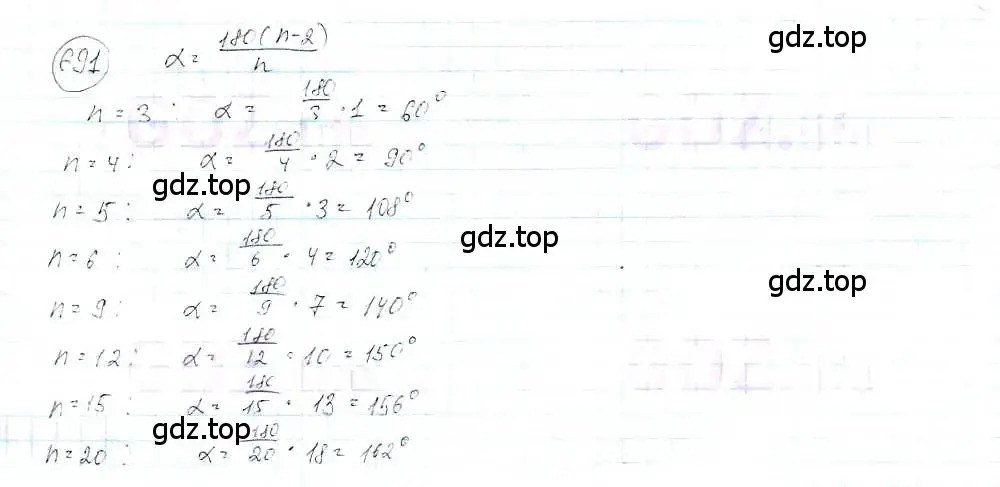 691 α = 180(n-2)/n
n = 3 : α = 180/3 · 1 = 60°
n = 4 : α = 180/4 · 2 = 90°
gdz.top gdz.top
n = 5 : α = 180/5 · 3 = 108°
gdz.top
n = 6 : α = 180/6 · 4 = 120°
gdz.top
n = 9 : α = 180/9 · 7 = 140°
n = 12 : α = 180/12 = 10 = 150°
n = 15 : α = 180/15 · 13 = 156°
gdz.top gdz.top
n = 20 : α = 180/20 · 18 = 162°
gdz.top